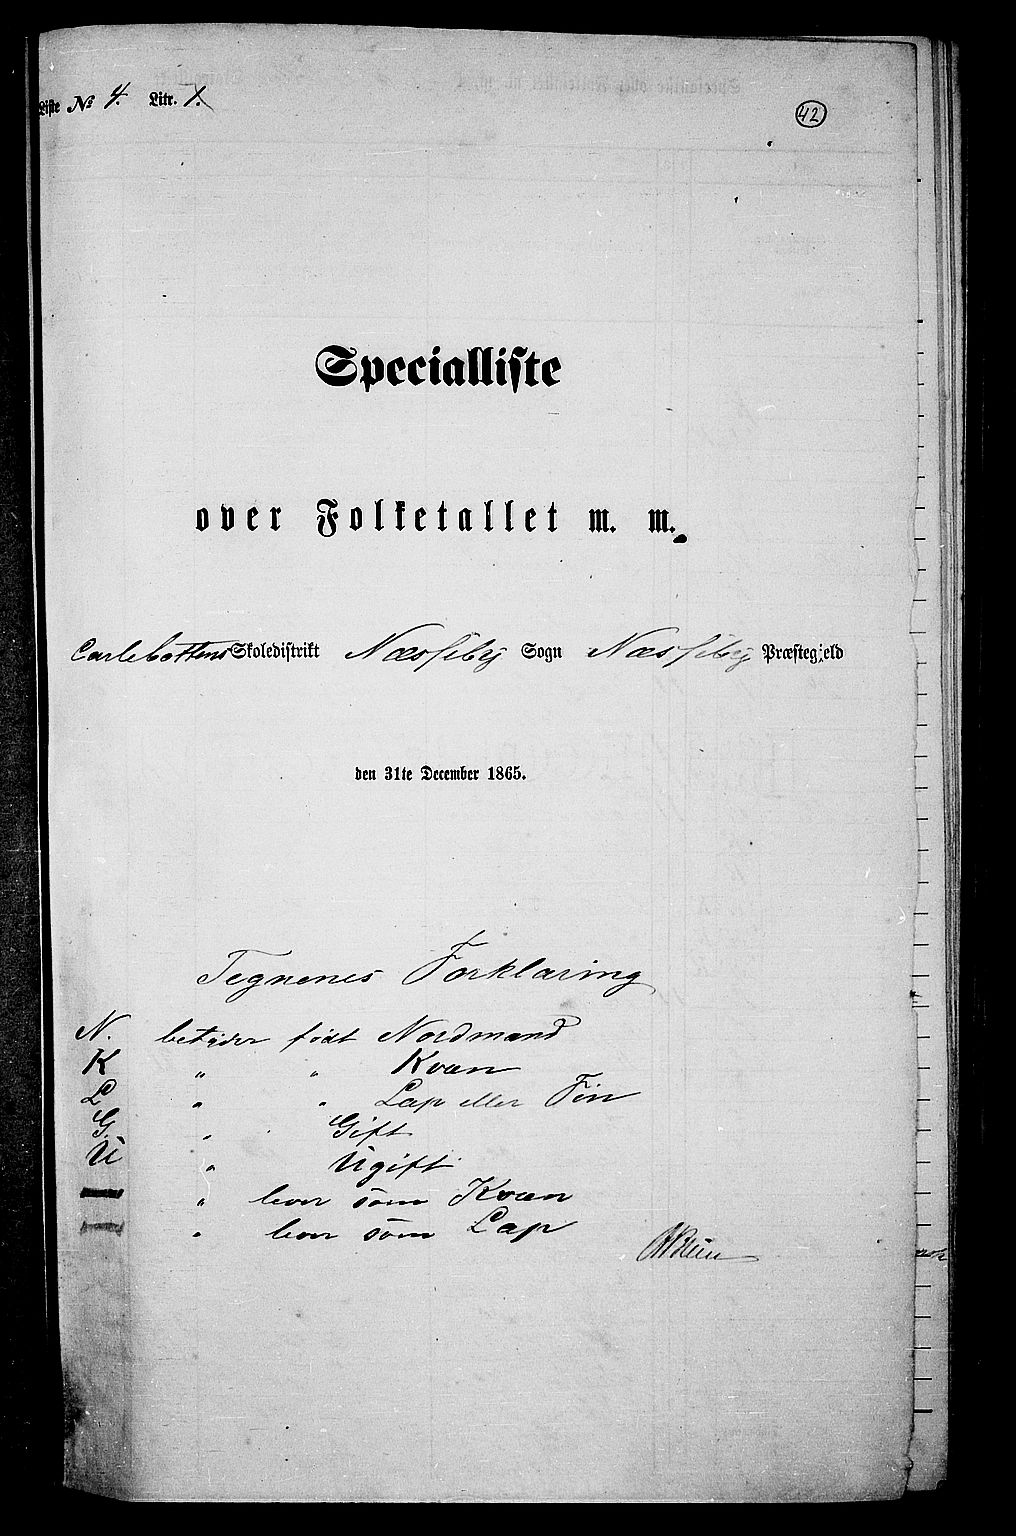 Liste No 4. Litr. 1.
42
Specialliste
over Folketallet m. m.
Carlebottens Skoledistrikt Næsseby Sogn Næsseby Præstegjeld
den 31te December 1865.
Tegnenes Forklaring
N. betyder födt Nordmand
K " " Kvæn
L " " Lap eller Fin
G. " Gift
U " Ugift
" lever som Kvæn
" lever som Lap